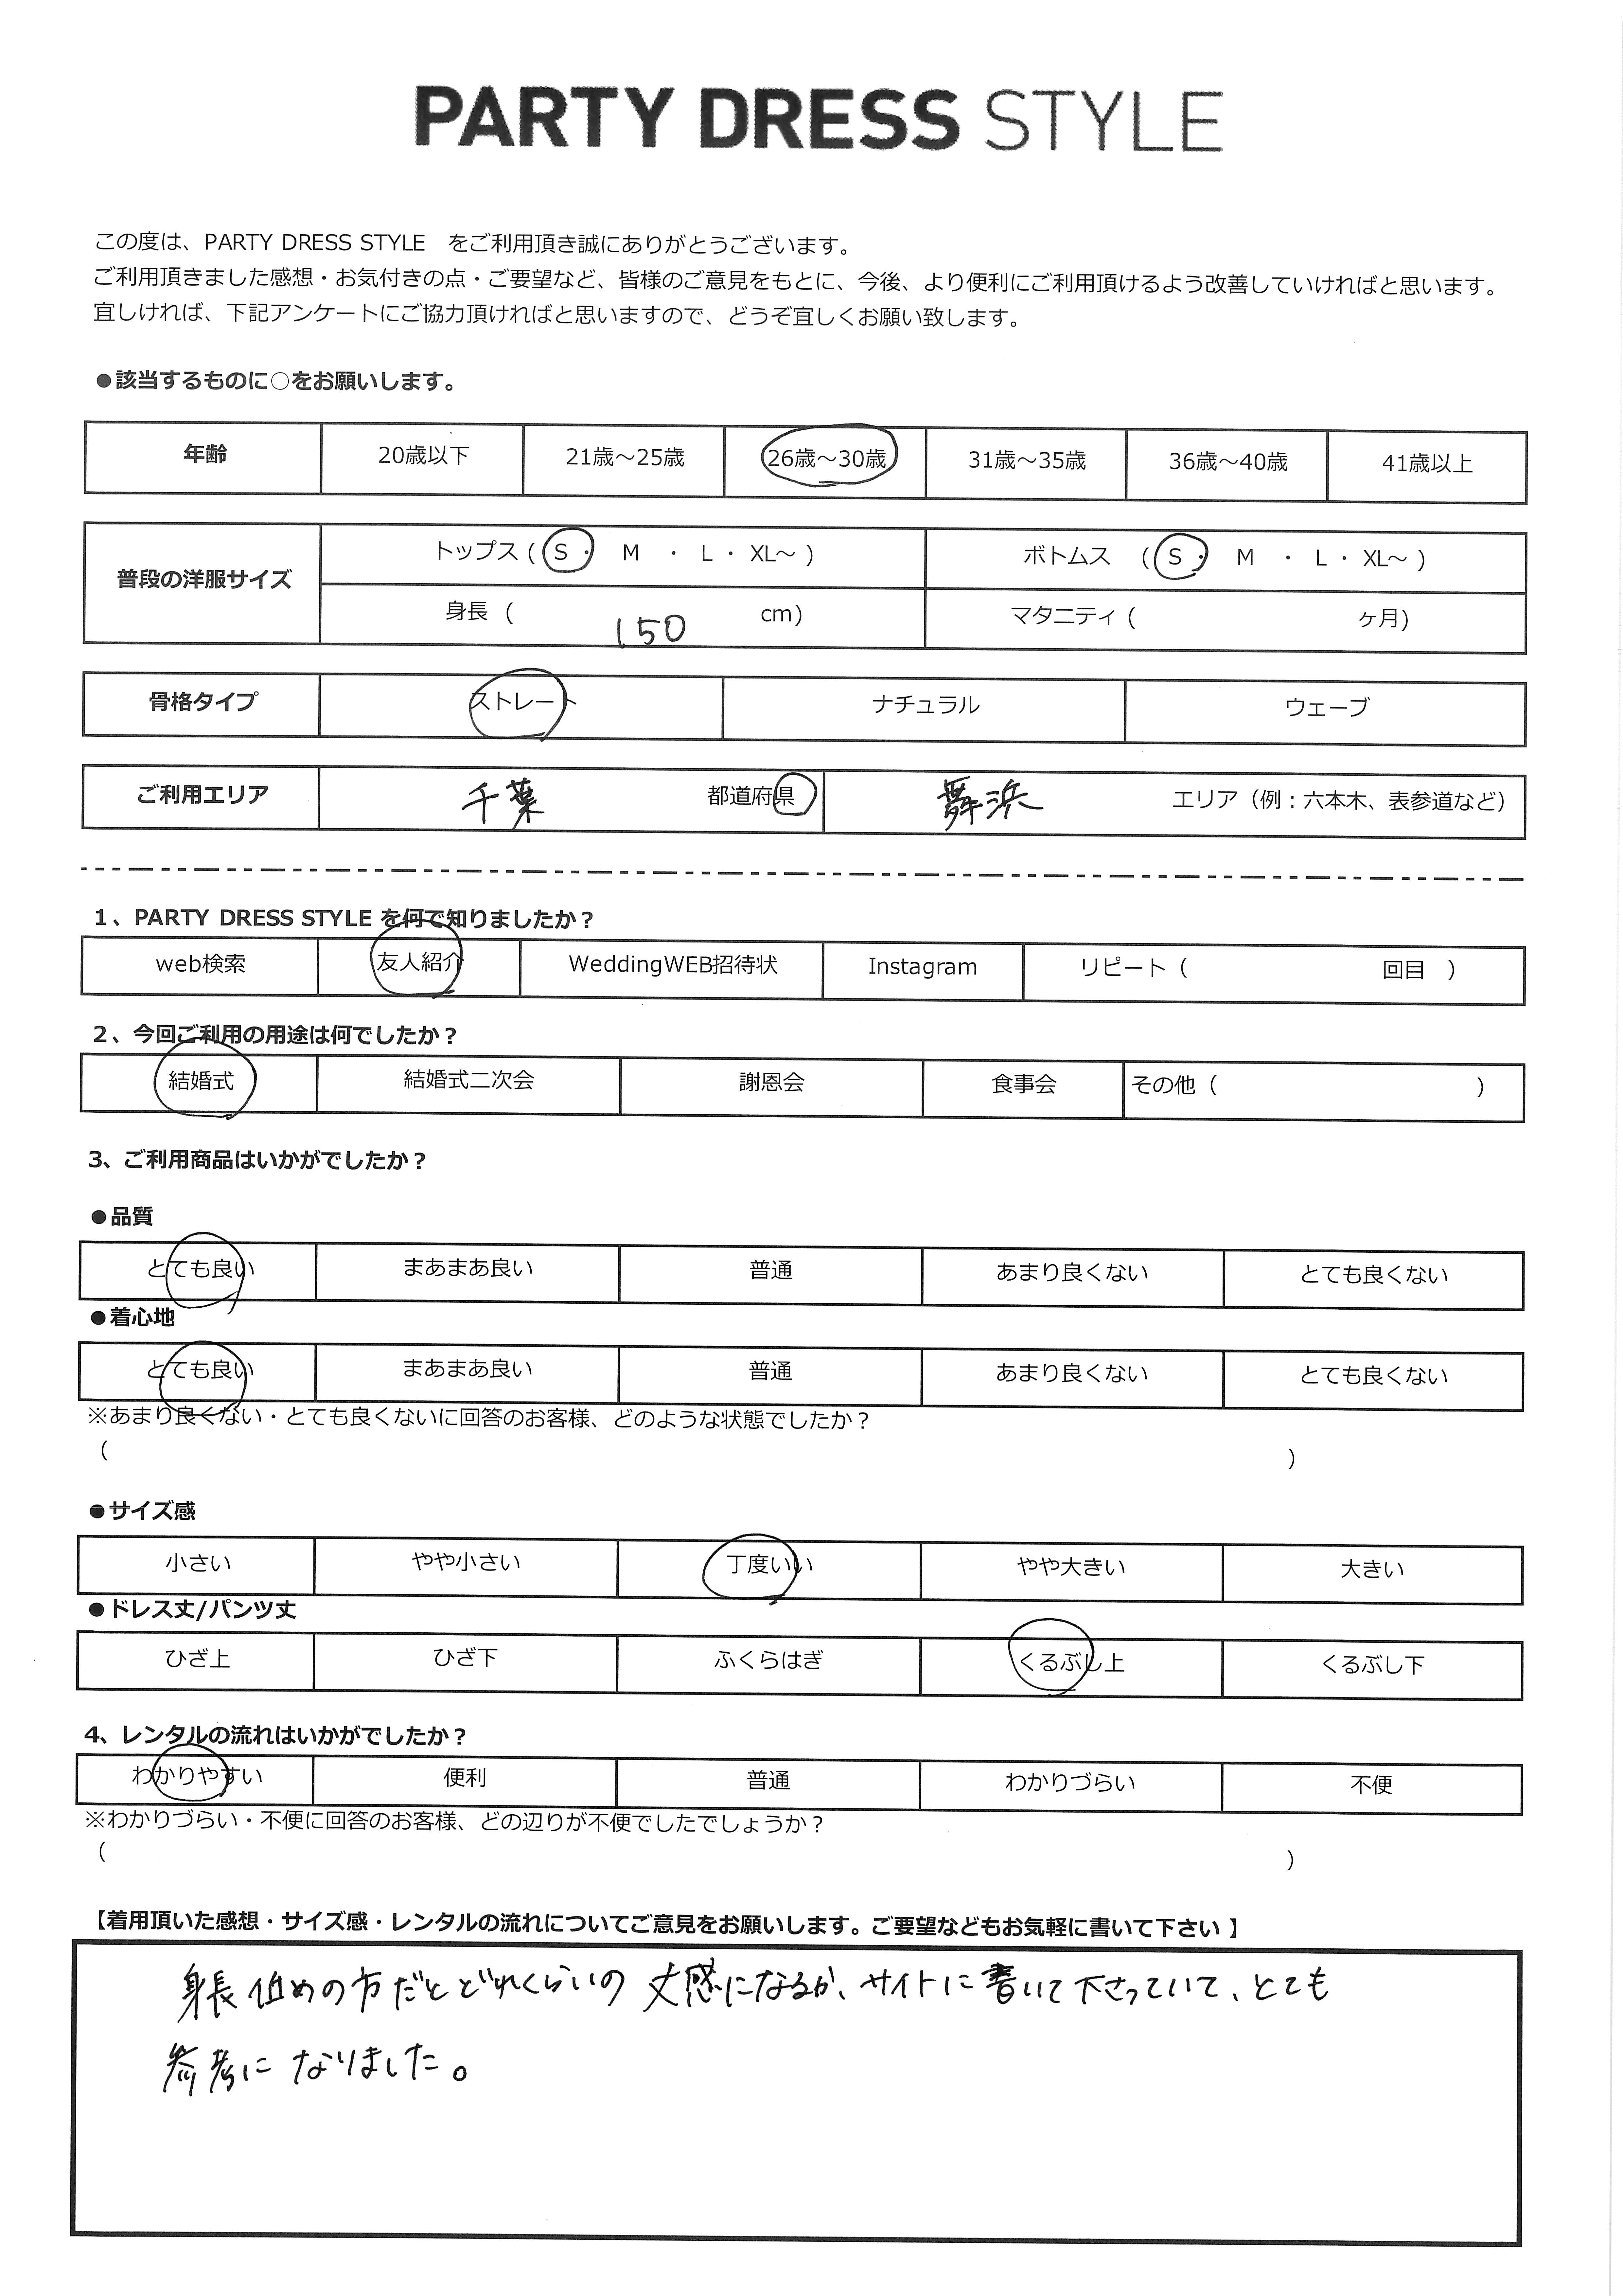 PARTY DRESS STYLE
この度は、PARTY DRESS STYLE　をご利用頂き誠にありがとうございます。
ご利用頂きました感想・お気付きの点・ご要望など、皆様のご意見をもとに、今後、より便利にご利用頂けるよう改善していければと思います。
宜しければ、下記アンケートにご協力頂ければと思いますので、どうぞ宜しくお願い致します。
●該当するものに○をお願いします。
年齢 20歳以下 21歳～25歳 26歳～30歳 31歳～35歳 36歳～40歳 41歳以上
普段の洋服サイズ トップス ( S ・ M ・ L ・ XL～ ) ボトムス ( S ・ M ・ L ・ XL～ )
身長 ( 150 cm) マタニティ ( ヶ月)
骨格タイプ ストレート ナチュラル ウェーブ
ご利用エリア 千葉 都道府県 舞浜 エリア（例：六本木、表参道など）
1、PARTY DRESS STYLE を何で知りましたか？
web検索 友人紹介 WeddingWEB招待状 Instagram リピート（ 回目 ）
2、今回ご利用の用途は何でしたか？
結婚式 結婚式二次会 謝恩会 食事会 その他（ ）
3、ご利用商品はいかがでしたか？
●品質
とても良い まあまあ良い 普通 あまり良くない とても良くない
●着心地
とても良い まあまあ良い 普通 あまり良くない とても良くない
※あまり良くない・とても良くないに回答のお客様、どのような状態でしたか？
（ ）
●サイズ感
小さい やや小さい 丁度いい やや大きい 大きい
●ドレス丈/パンツ丈
ひざ上 ひざ下 ふくらはぎ くるぶし上 くるぶし下
4、レンタルの流れはいかがでしたか？
わかりやすい 便利 普通 わかりづらい 不便
※わかりづらい・不便に回答のお客様、どの辺りが不便でしたでしょうか？
（ ）
【着用頂いた感想・サイズ感・レンタルの流れについてご意見をお願いします。ご要望などもお気軽に書いて下さい】
身長低めの方だとどれくらいの丈感になるか、サイトに書いて下さっていて、とても
参考になりました。